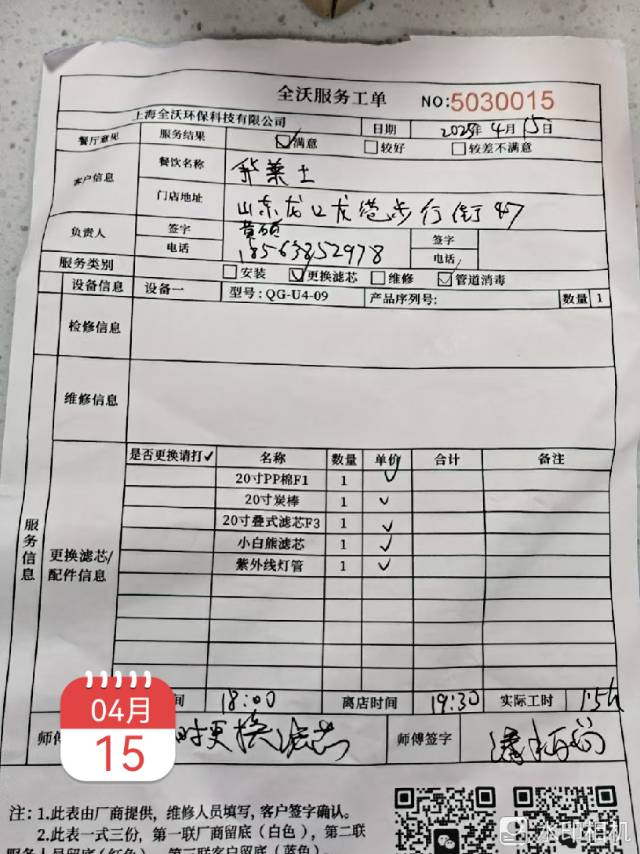 全沃服务工单 NO:5030015
上海全沃环保科技有限公司 日期 2025年4月15日
餐厅意见 服务结果 ☑满意 □较好 □较差不满意
客户信息 餐饮名称 华莱士
门店地址 山东龙口龙港步行街47
负责人 签字 签字
电话 18563852978 电话
服务类别 □安装 ☑更换滤芯 □维修 ☑管道消毒
设备信息 设备一 型号:QG-U4-09 产品序列号: 数量 1
检修信息
维修信息
服务信息
更换滤芯/配件信息
是否更换请打✓ 名称 数量 单价 合计 备注
20寸PP棉F1 1 ✓
20寸炭棒 1 ✓
20寸叠式滤芯F3 1 ✓
小白熊滤芯 1 ✓
紫外线灯管 1 ✓
间 18:00 离店时间 19:30 实际工时 1.5h
师傅 时更换滤芯 师傅签字
04月
15
注:1.此表由厂商提供，维修人员填写,客户签字确认。
2.此表一式三份，第一联厂商留底(白色)，第二联
服务人员留底(红色)，第三联客户留底(蓝色)。
水印相机